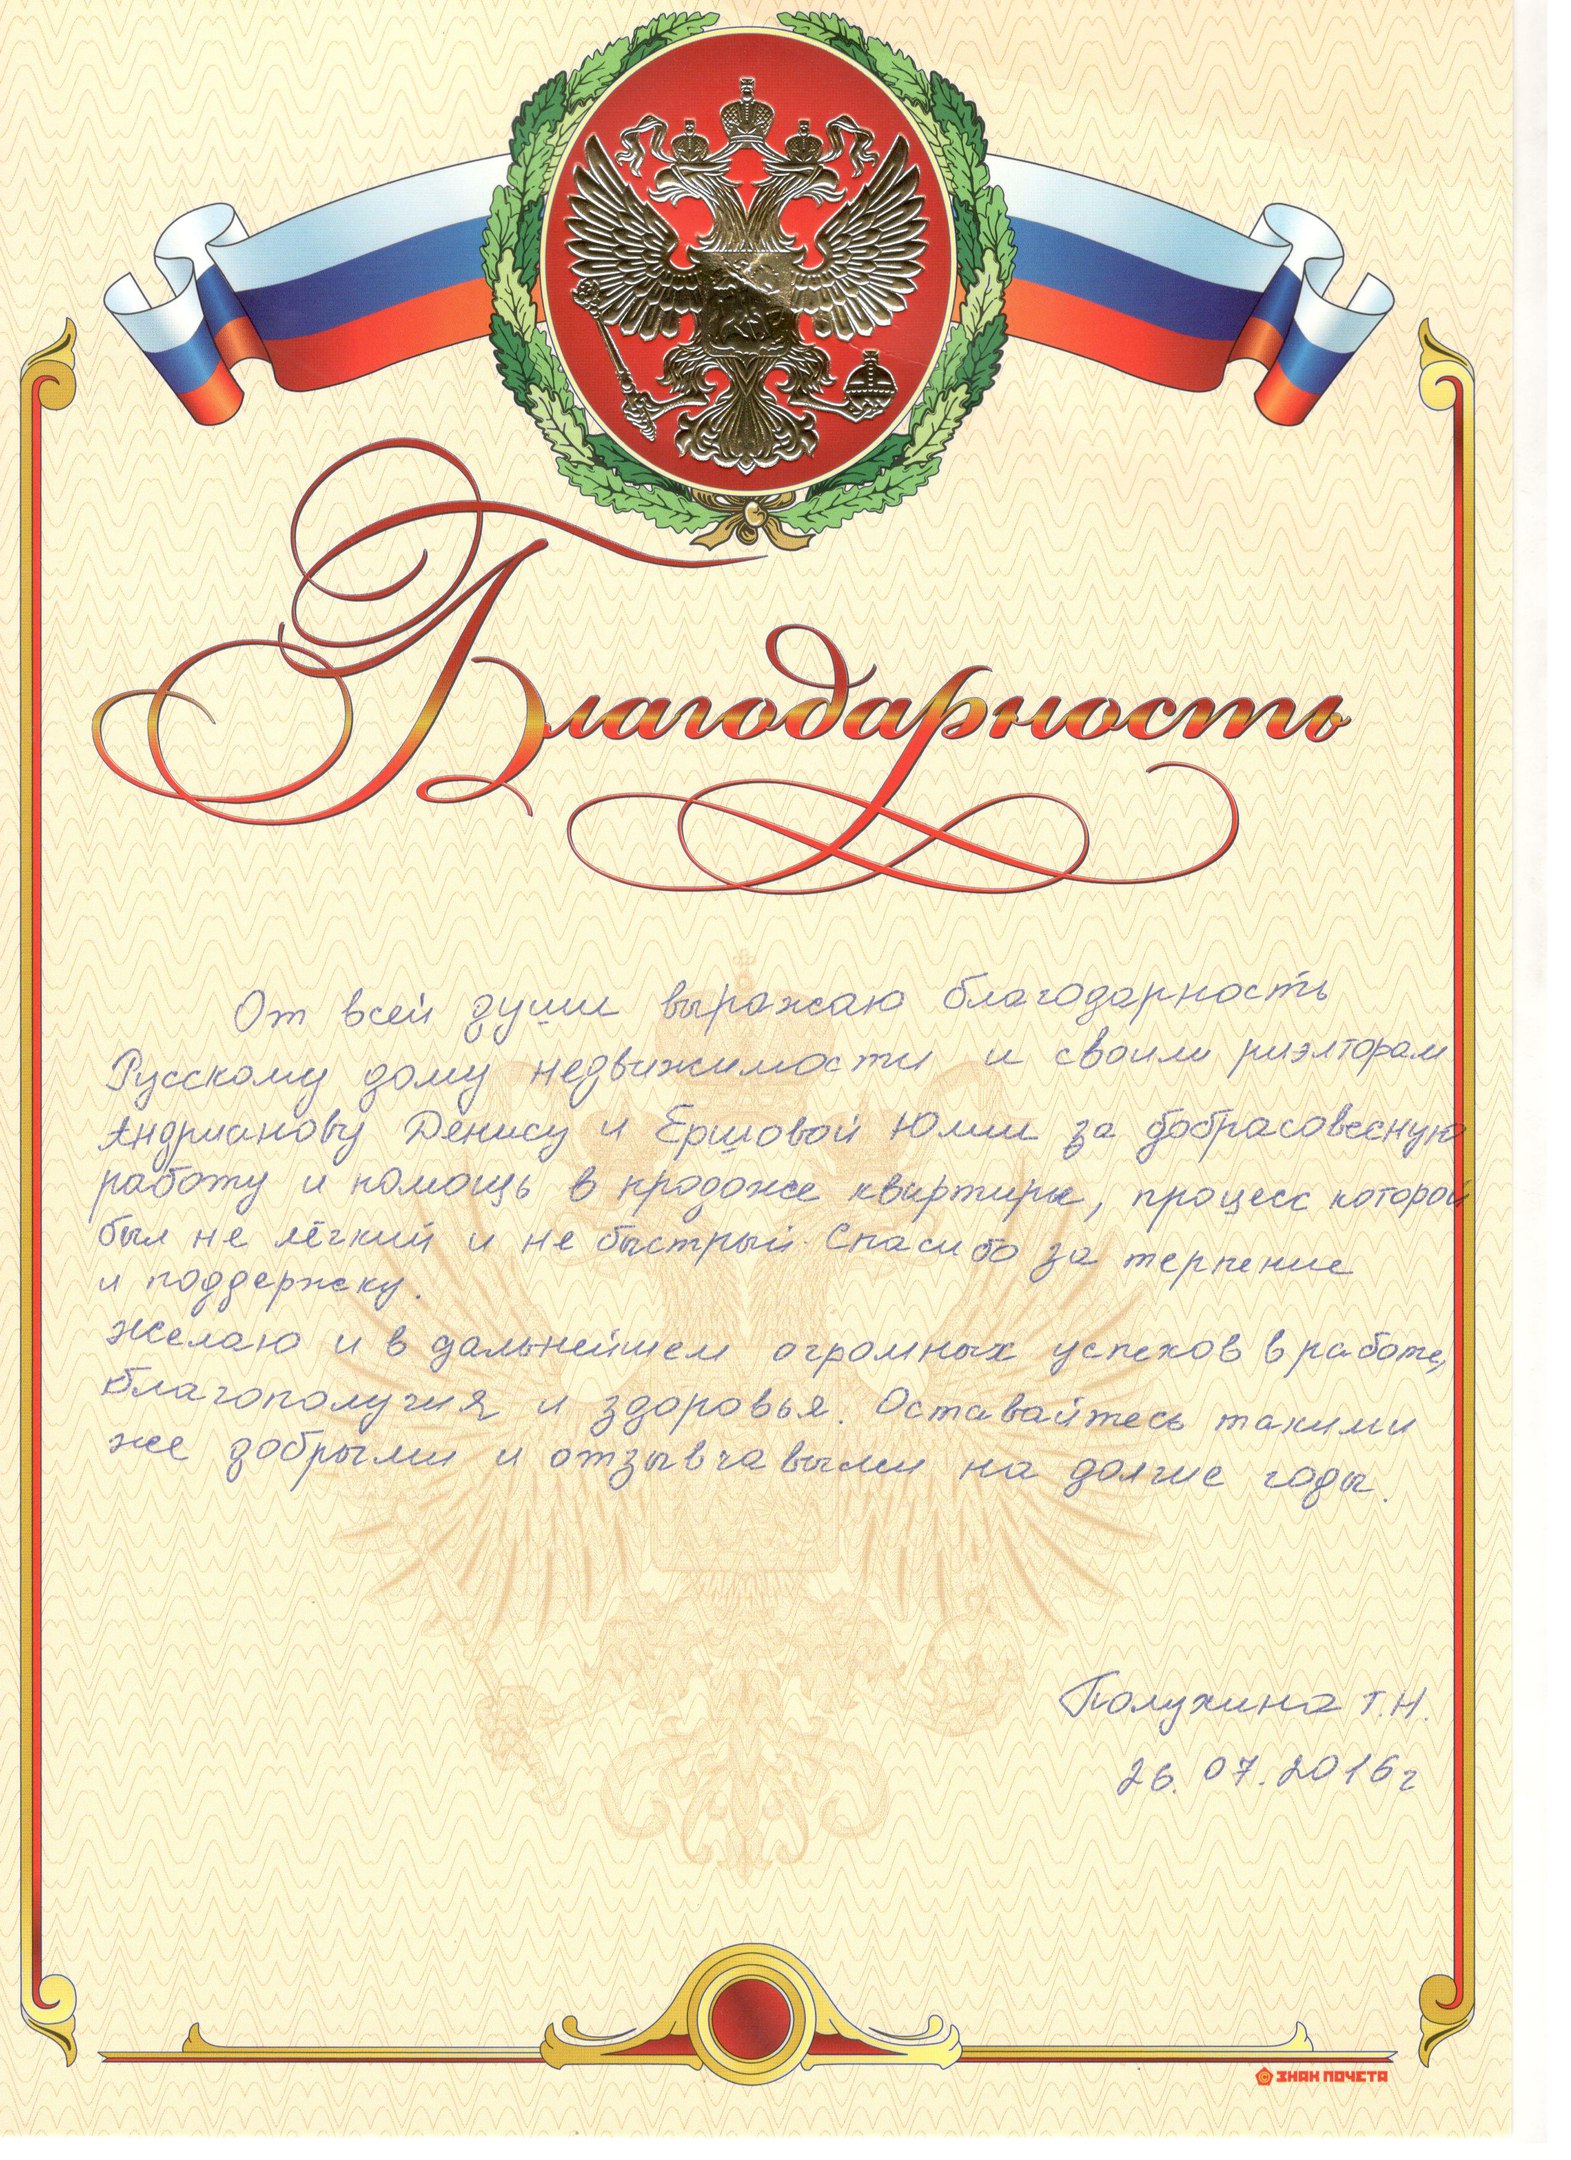 Благодарность
От всей души выражаю благодарность
Русскому дому недвижимости и своим риэлторам
Андрианову Денису и Ершовой Юлии за добрасовесную
работу и помощь в продаже квартиры, процесс которой
был не лёгкий и не быстрый. Спасибо за терпение
и поддержку.
Желаю и в дальнейшем огромных успехов в работе,
благополучия и здоровья. Оставайтесь такими
же добрыми и отзывчавыми на долгие годы.
Полухина Т.Н.
26.07.2016г
ЗНАК ПОЧЕТА